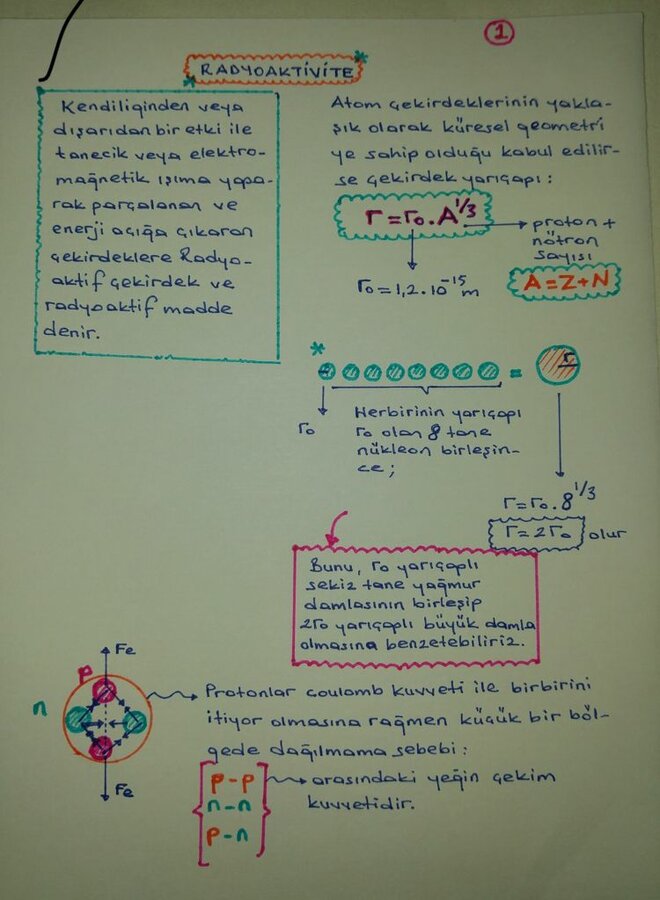 1
RADYOAKTİVİTE
Kendiliğinden veya
dışarıdan bir etki ile
tanecik veya elektro-
mağnetik ışıma yapa-
rak parçalanan ve
enerji açığa çıkaran
çekirdeklere Radyo-
aktif çekirdek ve
radyoaktif madde
denir.
Atom çekirdeklerinin yakla-
şık olarak küresel geometri
ye sahip olduğu kabul edilir-
se çekirdek yarıçapı:
r = r₀.A^1/3
proton +
nötron
sayısı
r₀ = 1,2.10⁻¹⁵ m
A = Z + N
* = r
r₀
Herbirinin yarıçapı
r₀ olan 8 tane
nükleon birleşin-
ce;
r = r₀.8^1/3
r = 2r₀ olur
Bunu, r₀ yarıçaplı
sekiz tane yağmur
damlasının birleşip
2r₀ yarıçaplı büyük damla
olmasına benzetebiliriz.
Fe
p
n
Fe
Protonlar coulomb kuvveti ile birbirini
itiyor olmasına rağmen küçük bir böl-
gede dağılmama sebebi:
p-p
n-n
p-n
arasındaki yeğin çekim
kuvvetidir.